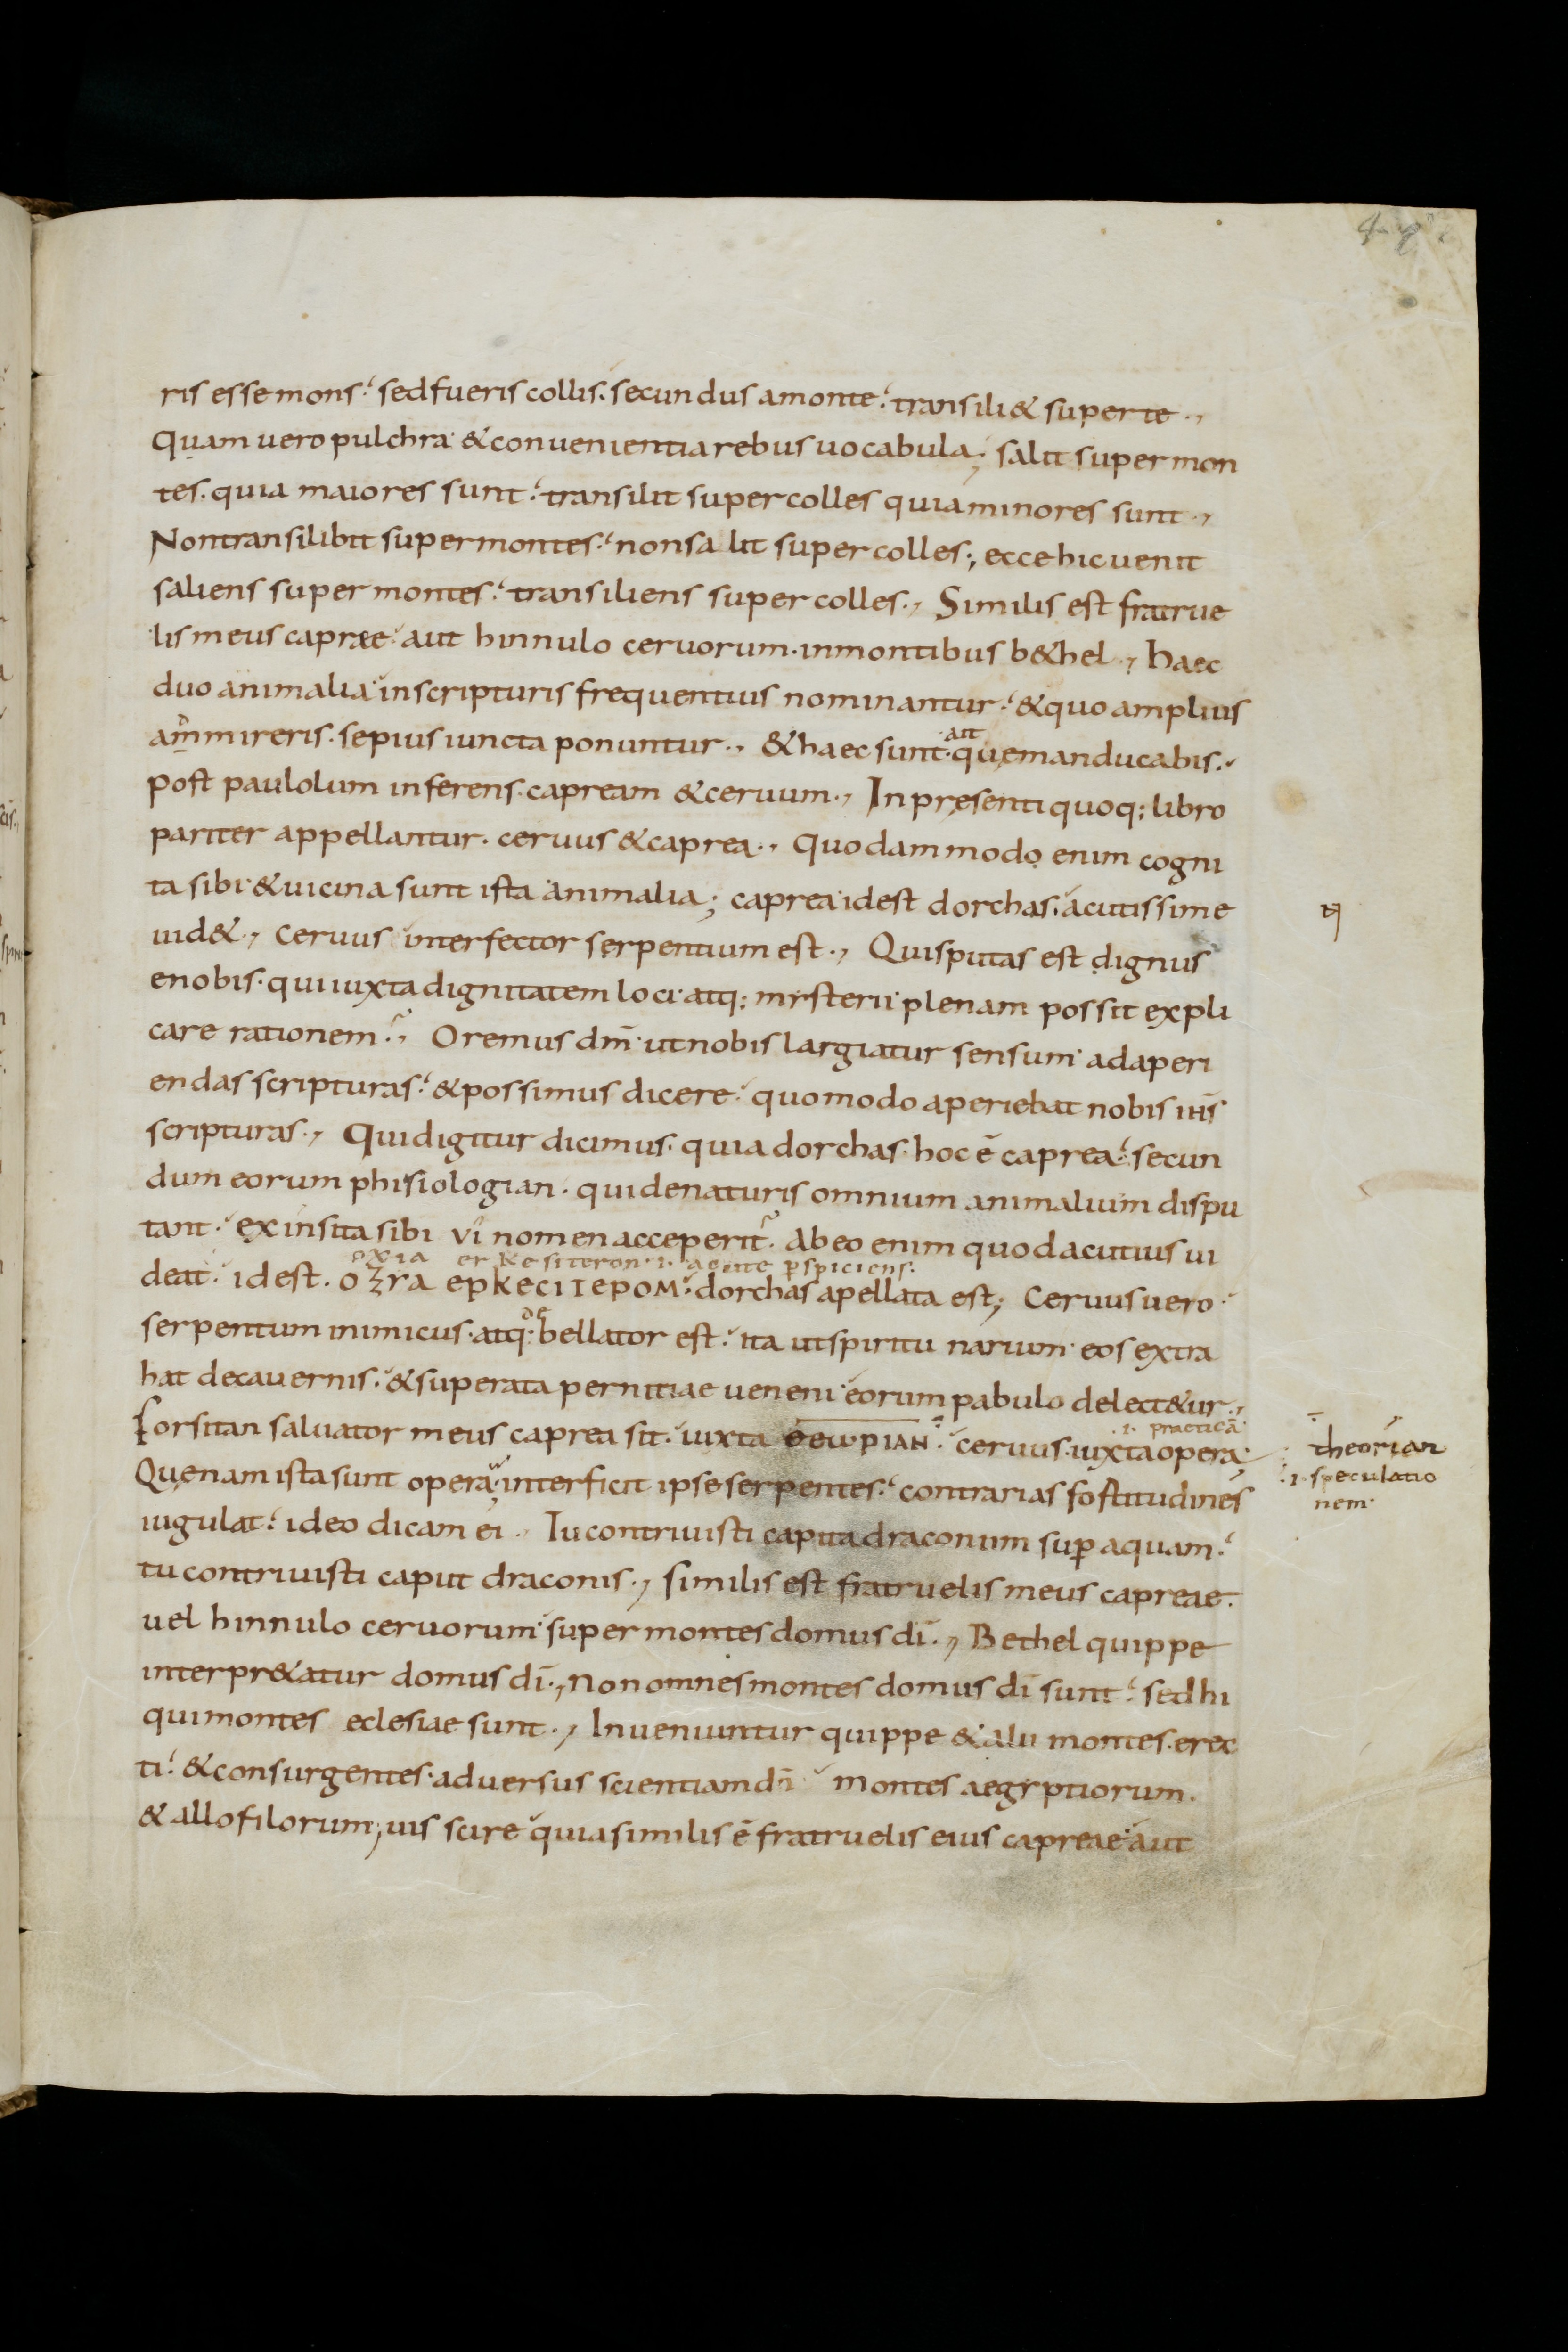 ris esse mons. sed fueris collis. secundus a monte. transili& super te.,
Quam uero pulchra & conuenientia rebus uocabula; salit super mon
tes. quia maiores sunt. transilit super colles quia minores sunt.,
Non transilibit super montes. non salit super colles; ecce hic uenit
saliens super montes. transiliens super colles., Similis est fratrue
lis meus capreae aut hinnulo ceruorum. in montibus b&hel., haec
duo animalia in scripturis frequentius nominantur. & quo amplius
ammireris. sepius iuncta ponuntur., & haec sunt. quę manducabis.
post paulolum inferens. capream & ceruum., In pręsenti quoq; libro
pariter appellantur. ceruus & caprea., Quodammodo enim cogni
ta sibi & uicina sunt ista animalia; caprea idest dorchas. acutissime
uid&., ceruus interfector serpentium est., Quis putas est dignus
e nobis. qui iuxta dignitatem loci atq; mysterii plenam possit expli
care rationem., Oremus dm̄ ut nobis largiatur sensum adaperi
endas scripturas. & possimus dicere. quomodo aperiebat nobis ih̄s
scripturas., Quid igitur dicimus. quia dorchas. hoc ē caprea. secun
dum eorum phisiologian. qui de naturis omnium animalium dispu
tant. ex insita sibi vi nomen acceperit. Ab eo enim quod acutius ui
oxia er ke siteron. i. acute p̱spiciens.
deat. idest. οξγα ερκεcιτεροm. dorchas apellata est; Ceruus uero
de
serpentum inimicus. atq; bellator est. ita ut spiritu narium eos extra
hat de cauernis. & superata pernitiae ueneni eorum pabulo delect&ur.,
.i. practicā
forsitan saluator meus caprea sit. iuxta θεωριαν. ceruus. iuxta opera.
theorian
.i. speculatio
nem
Quęnam ista sunt opera. interficit ipse serpentes. contrarias fortitudines
iugulat. ideo dicam ei., Tu contriuisti capita draconum sup̱ aquam.
tu contriuisti caput draconis., similis est fratruelis meus capreae.
uel hinnulo ceruorum super montes domus dī., Bethel quippe
interpr&atur domus dī., non omnes montes domus dī sunt. sed hi
qui montes eclesiae sunt., Inueniuntur quippe & alii montes. erec
ti. & consurgentes. aduersus scientiam dī montes aegyptiorum.
& allofilorum; uis scire quia similis ē fratruelis eius capreae aut